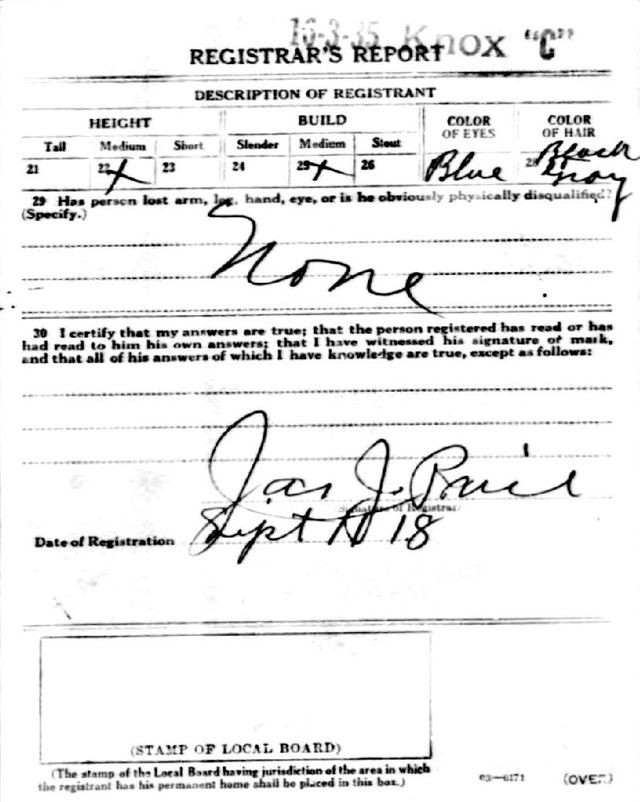 16-3-35 Knox "C"
REGISTRAR'S REPORT
DESCRIPTION OF REGISTRANT
HEIGHT BUILD COLOR OF EYES COLOR OF HAIR
Tall Medium Short Slender Medium Stout
21 22 X 23 24 25 X 26 Blue 28 Black Gray
29 Has person lost arm, leg, hand, eye, or is he obviously physically disqualified?
(Specify.)
None
30 I certify that my answers are true; that the person registered has read or has
had read to him his own answers; that I have witnessed his signature or mark,
and that all of his answers of which I have knowledge are true, except as follows:
Jas J.
Signature of Registrar
Date of Registration Sept 18
(STAMP OF LOCAL BOARD)
(The stamp of the Local Board having jurisdiction of the area in which
the registrant has his permanent home shall be placed in this box.)
03—6171 (OVER)